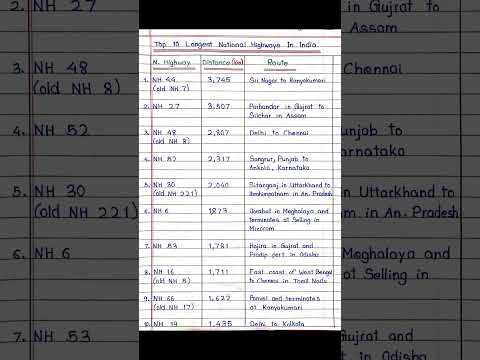 2. NH 27
3. NH 48
(old NH 8)
NH 52
5. NH 30
(old NH 221)
6. NH 6
7. NH 53
Top 10 Longest National Highways In India
N. Highway Distance (km) Route
1. NH 44 3,745 Sri Nagar to Kanyakumari
(old NH 7)
2. NH 27 3,507 Porbandar in Gujrat to
Silchar in Assam
3. NH 48 2,807 Delhi to Chennai
(old NH 8)
4. NH 52 2,317 Sangrur, Punjab to
Ankola, Karnataka
5. NH 30 2,040 Sitarganj in Uttarkhand to
(old NH 221) Ibrahimpatnam in An. Pradesh
6. NH 6 1873 Jorabat in Meghalaya and
terminates at Selling in
Mizoram
7. NH 53 1,781 Hajira in Gujrat and
Pradip port in Odisha
8. NH 16 1,711 East coast of West Bengal
(old NH 5) to Chennai in Tamil Nadu
9. NH 66 1,622 Panvel and terminates
(old NH 17) at Kanyakumari
10. NH 19 1,435 Delhi to Kolkata
in Gujrat to
Assam
Chennai
Punjab to
Karnataka
in Uttarkhand to
in An. Pradesh
Meghalaya and
at Selling in
Gujrat and
in Odisha